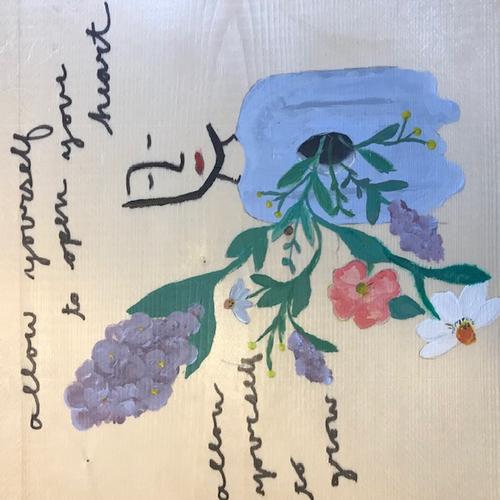 allow yourself
to open your
heart
allow
yourself
to
grow